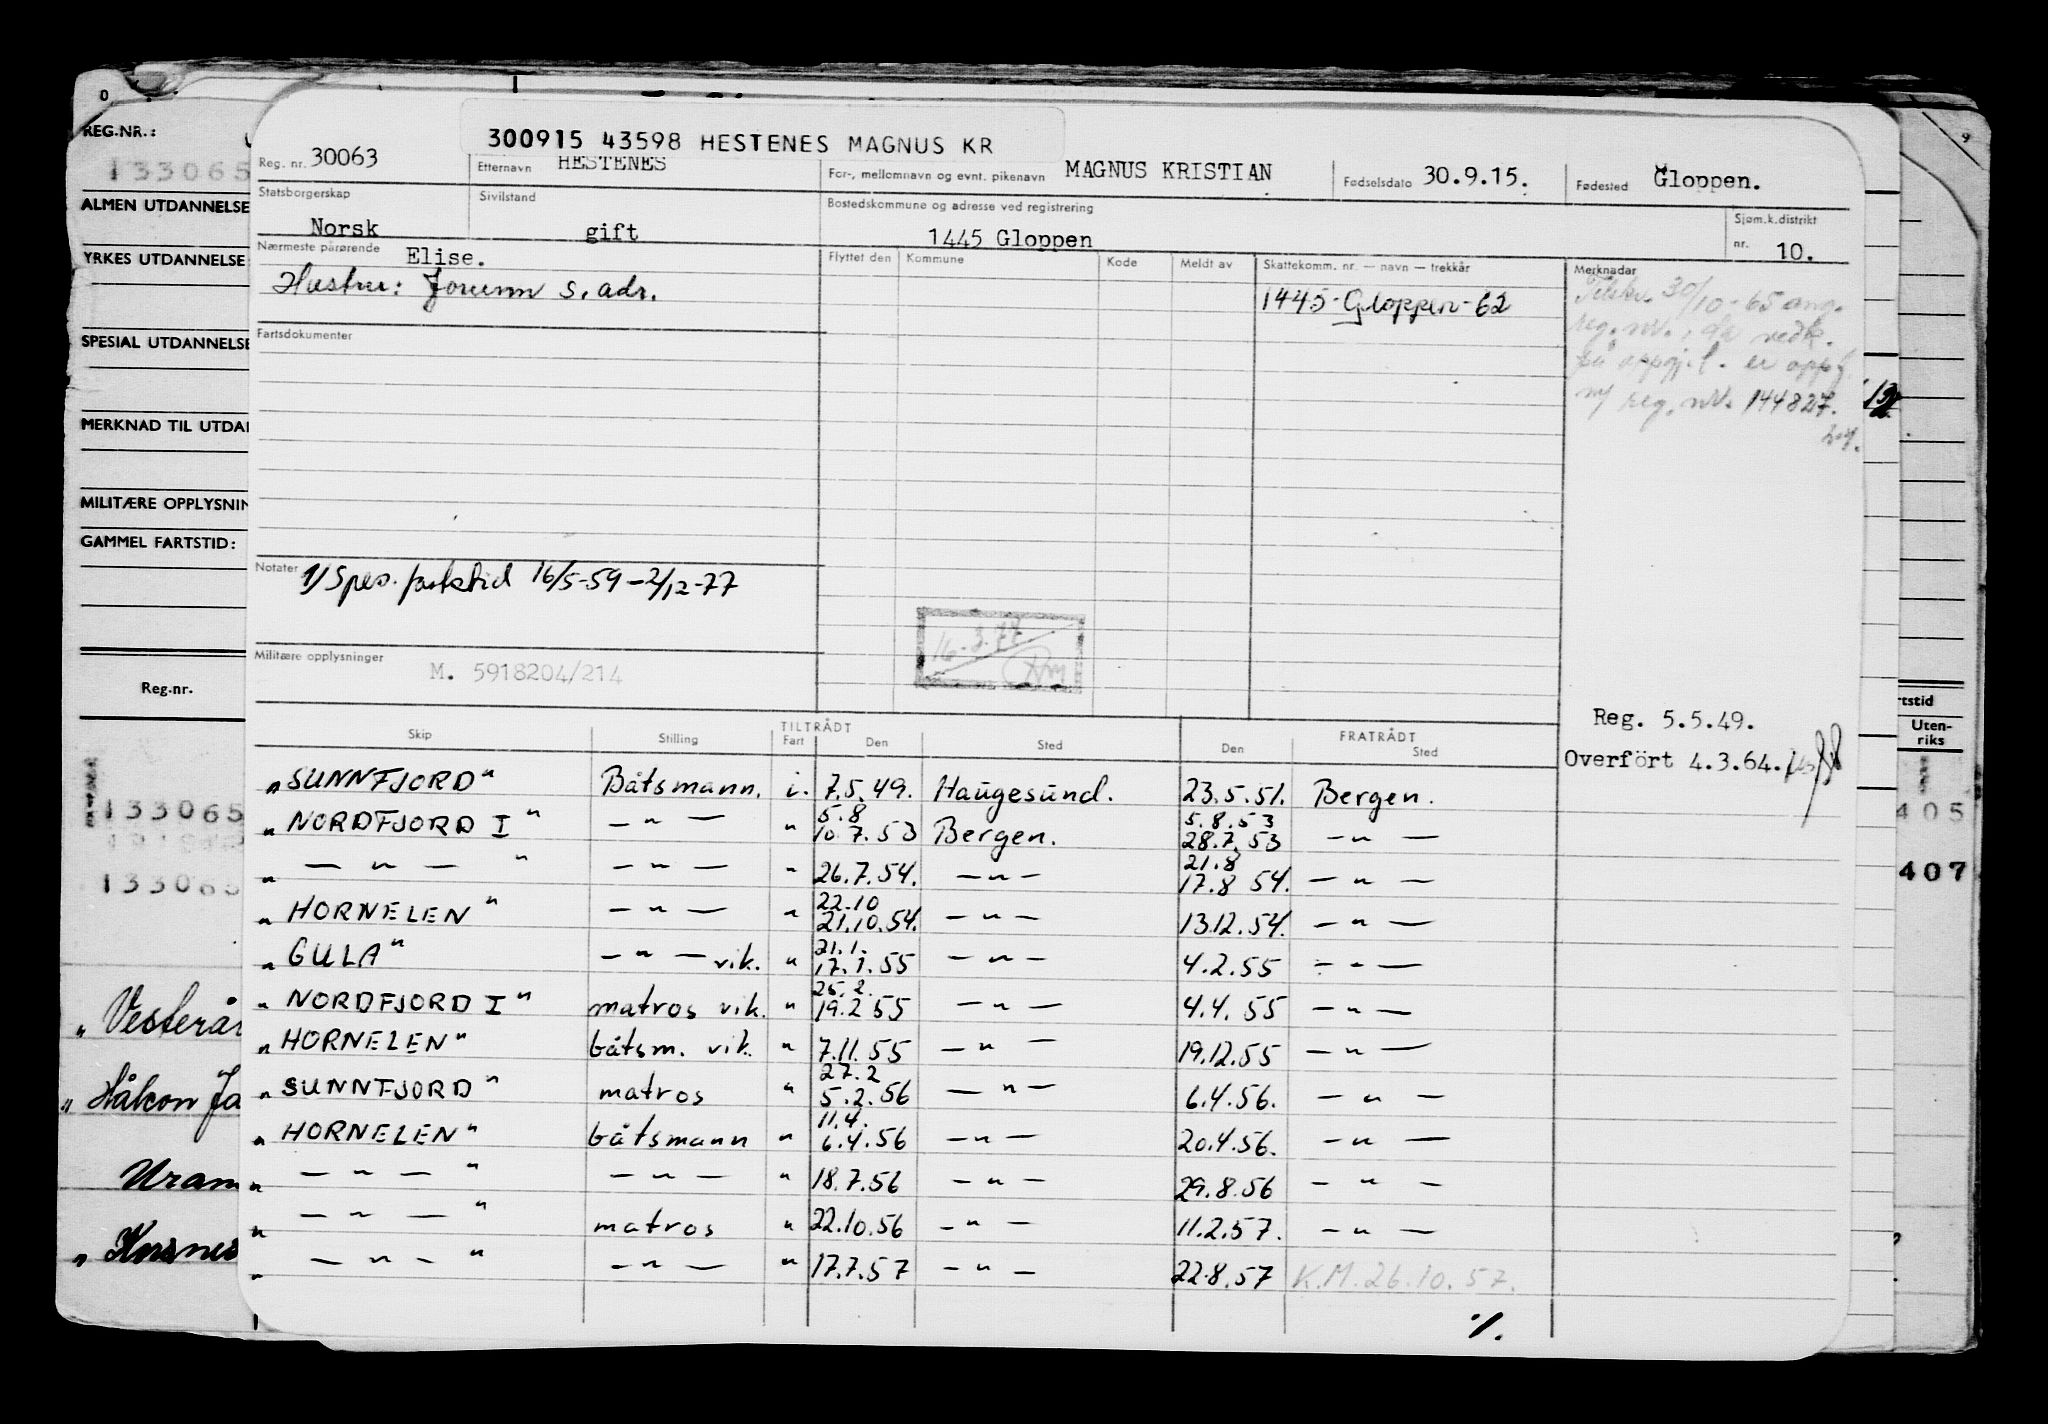 REG.NR.:
133065
ALMEN UTDANNELSE
YRKES UTDANNELSE
SPESIAL UTDANNELSE
MERKNAD TIL UTDA
MILITÆRE OPPLYSNIN
GAMMEL FARTSTID:
Reg.nr.
133065
133065
„ Vesterår
„ Håkon Ja
Uram
„ Korsnes
300915 43598 HESTENES MAGNUS KR
Reg. nr. 30063 Etternavn HESTENES For-, mellomnavn og evnt. pikenavn MAGNUS KRISTIAN Fødselsdato 30.9.15. Fødested Gloppen.
Statsborgerskap Norsk Sivilstand gift Bostedskommune og adresse ved registrering 1445 Gloppen Sjøm.k.distrikt nr. 10.
Nærmeste pårørende Elise.
Hustru: Jorunn s. adr.
Flyttet den Kommune Kode Meldt av Skattekomm. nr. — navn — trekkår
1445-Gloppen-62
Merknader
30/10-65 ang.
reg. nr., da vedk.
på oppgj.l. er oppf.
m/ reg. nr. 144827.
Fartsdokumenter
Notater 1/ Spes. fartstid 16/5-59 – 2/12-77
16.3.77
Militære opplysninger M. 5918204/214
Reg. 5.5.49.
Overfört 4.3.64.
Skip Stilling TILTRÅDT Fart Den Sted FRATRÅDT Den Sted
„SUNNFJORD" Båtsmann. i. 7.5.49. Haugesund. 23.5.51. Bergen.
5.8 5.8.53
„ NORDFJORD I " — " — " 10.7.53 Bergen. 28.7.53 — " —
21.8
„ — " — " — " — " 26.7.54. — " — 17.8 54. — " —
22.10
„ HORNELEN " — " — " 21.10.54. — " — 13.12.54. — " —
21.1.
„ GULA " — " — vik. " 17.1.55 — " — 4.2.55 — " —
25.2.
„ NORDFJORD I " matros vik. " 19.2 55 — " — 4.4.55 — " —
„ HORNELEN " båtsm. vik. " 7.11.55 — " — 19.12.55 — " —
27.2
„ SUNNFJORD " matros " 5.2.56 — " — 6.4.56. — " —
11.4.
„ HORNELEN " båtsmann " 6.4.56 — " — 20.4.56. — " —
„ — " — " — " — " 18.7.56 — " — 29.8.56 — " —
„ — " — " matros " 22.10.56 — " — 11.2.57. — " —
„ — " — " — " — " 17.7.57 — " — 22.8.57 K.M.26.10.57.
%.
rtsstid
Uten-
riks
405
407